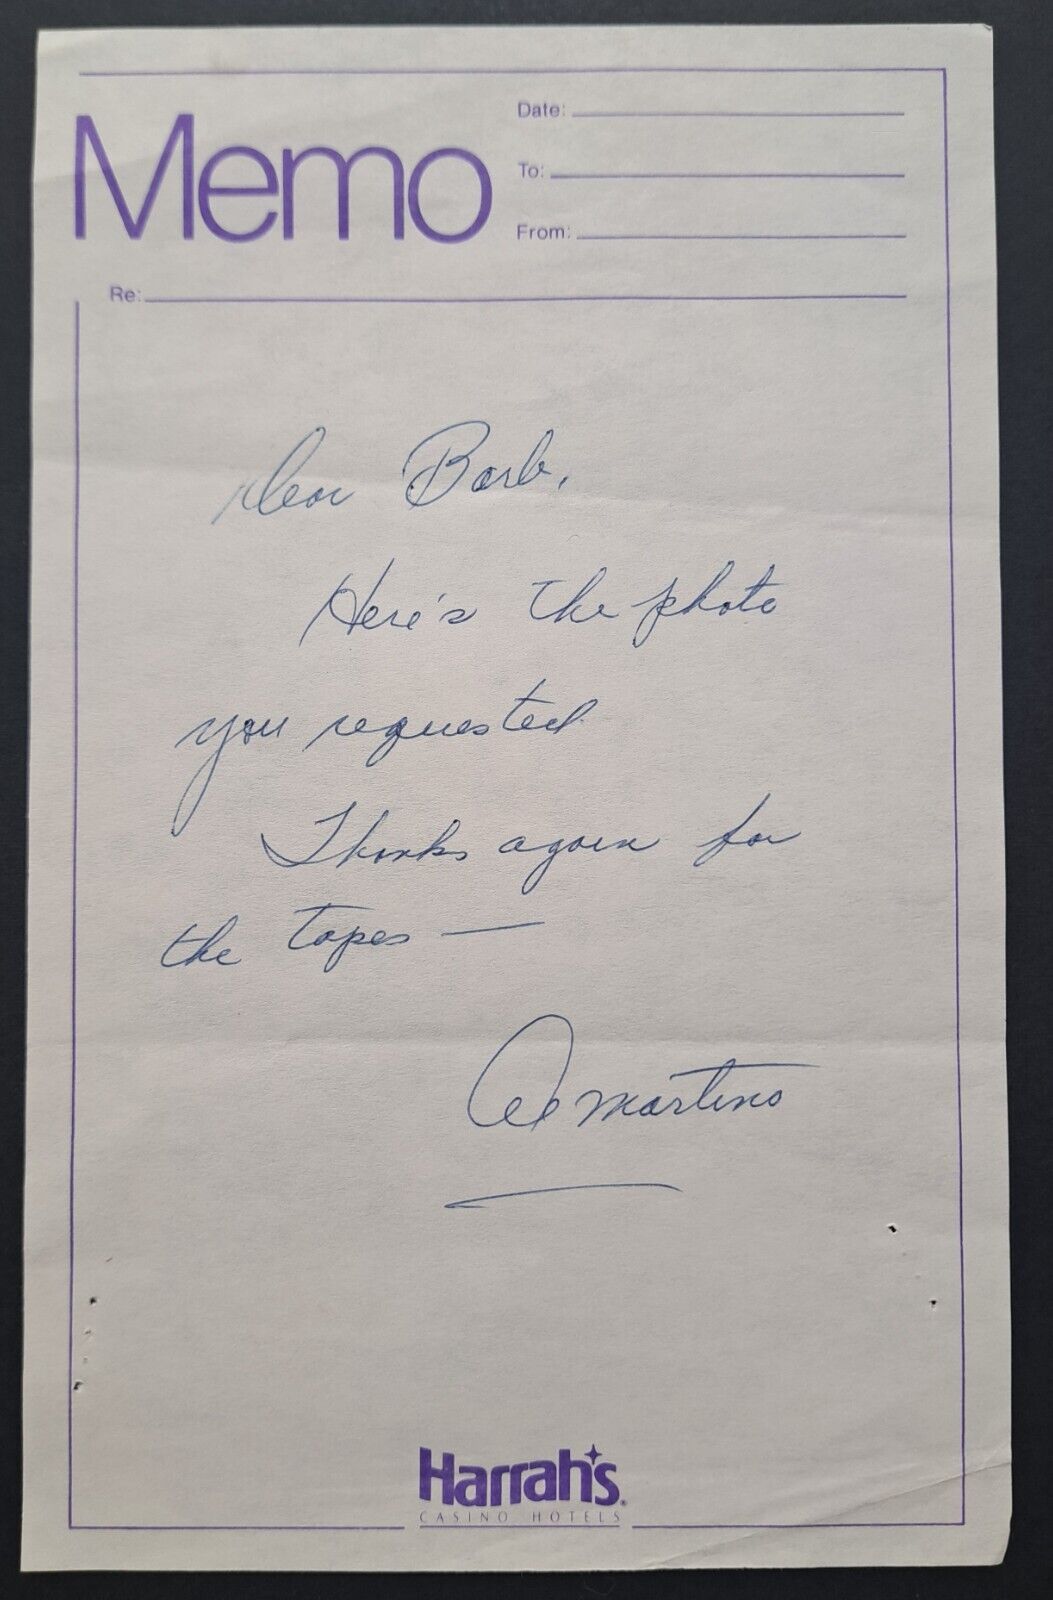 Memo
Date:
To:
From:
Re:
Dear Barb,
Here's the photo
you requested
Thanks again for
the tapes —
Al Martino
Harrah's
CASINO HOTELS